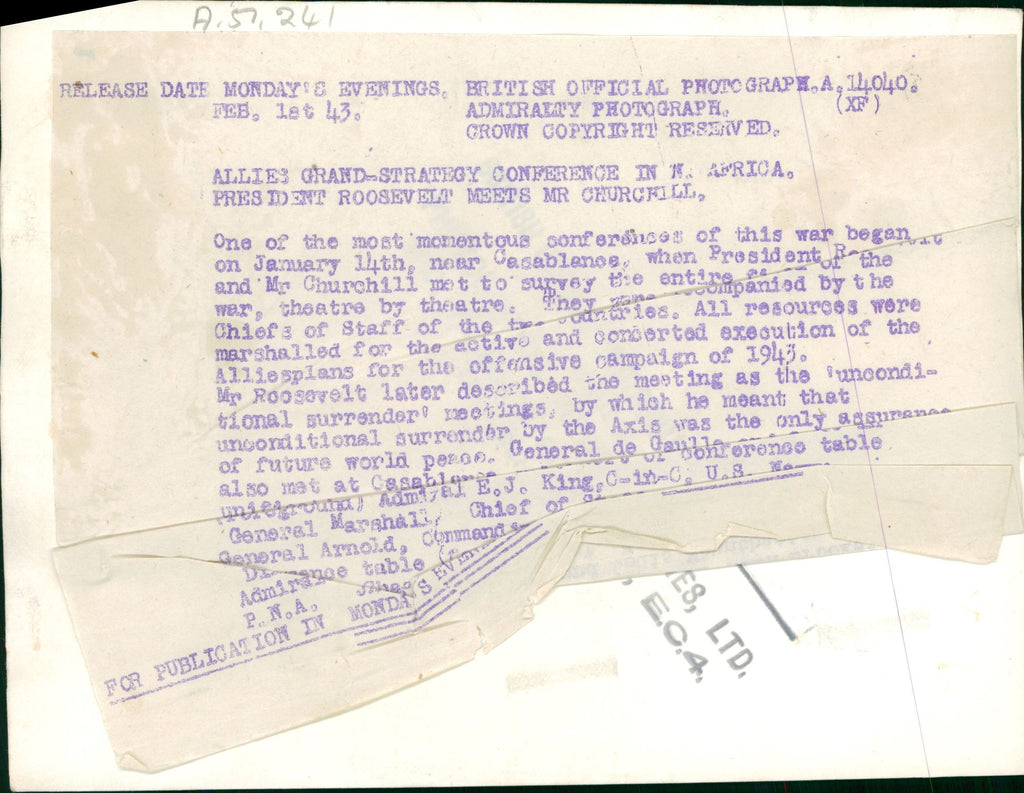 A.51.241
RELEASE DATE MONDAY'S EVENINGS. BRITISH OFFICIAL PHOTOGRAPH.A.14040.
FEB. 1st 43. ADMIRALTY PHOTOGRAPH. (XF)
CROWN COPYRIGHT RESERVED.
ALLIES GRAND-STRATEGY CONFERENCE IN N. AFRICA.
PRESIDENT ROOSEVELT MEETS MR CHURCHILL.
One of the most momentous conferences of this war began
on January 14th, near Casablance, when President
and Mr Churchill met to survey the entire of the
war, theatre by theatre. They were by the
Chiefs of Staff of the two countries. All resources were
marshalled for the active and concerted execution of the
Alliesplans for the offensive campaign of 1943.
Mr Roosevelt later described the meeting as the 'uncondi-
tional surrender' meetings, by which he meant that
unconditional surrender by the Axis was the only assurance
of future world peace. General de Gaulle
also met at conference table
Admiral E.J. King, C-in-C. U.S.
General Marshall, Chief of
General Arnold,
table
P.N.A.
FOR PUBLICATION IN MONDAY'S
LTD.
E.C.4.